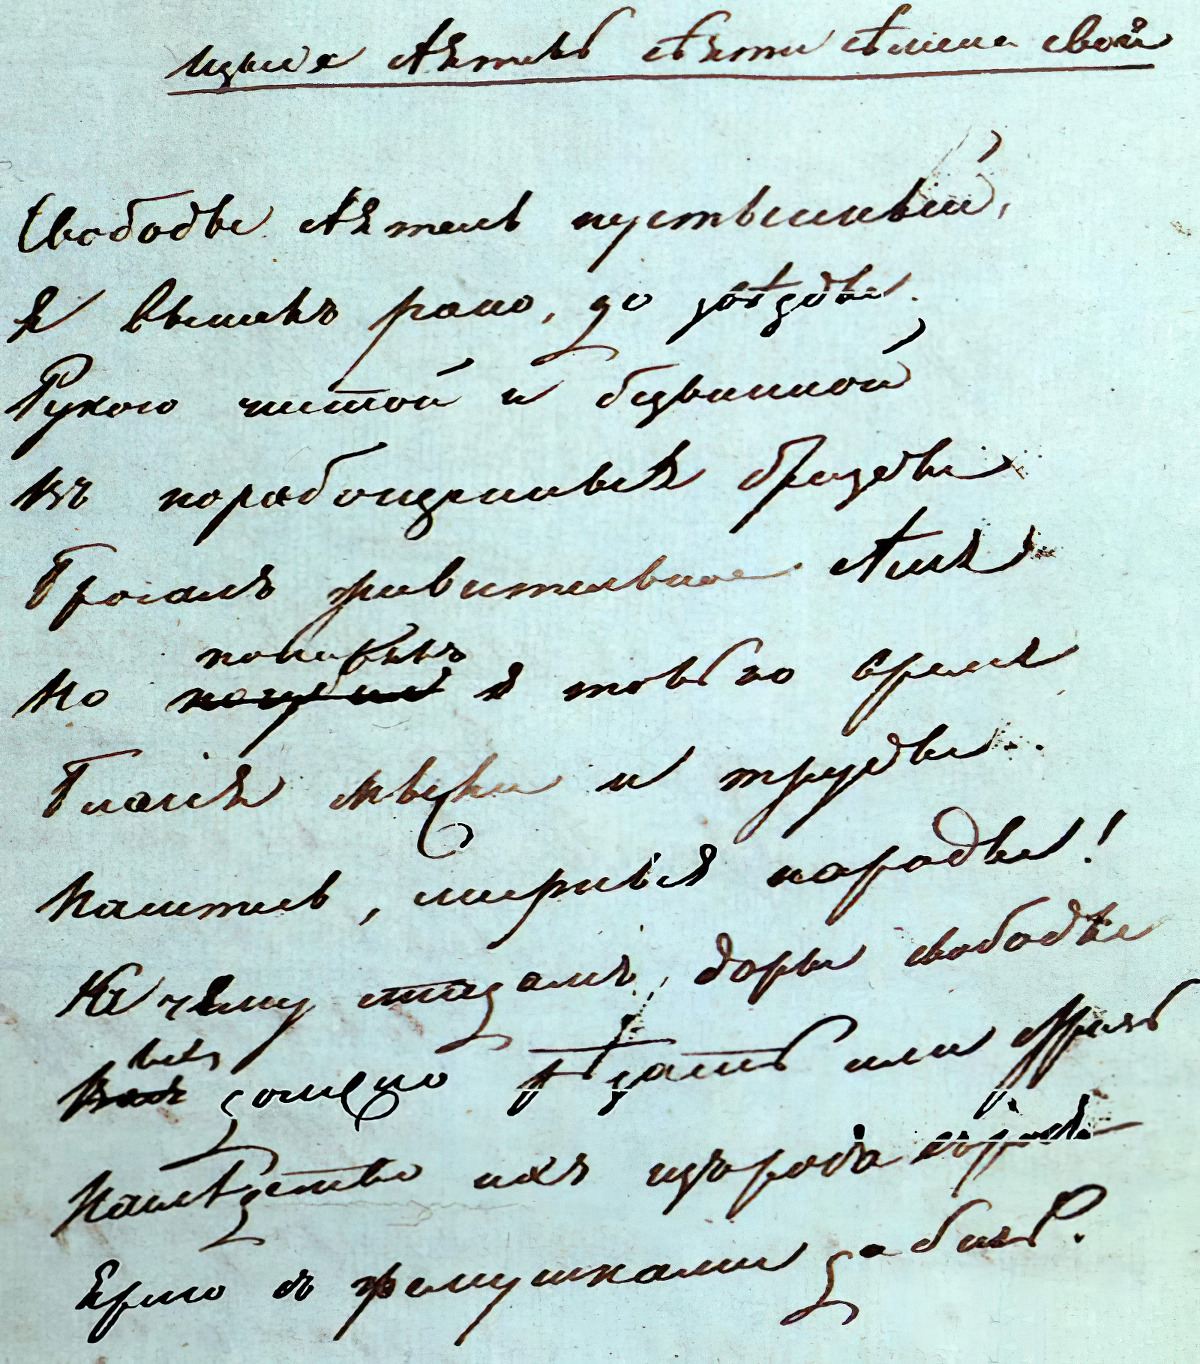 Изыде сѣятель сѣяти сѣмена свои
Свободы сѣятель пустынный,
Я вышелъ рано, до звѣзды.
Рукою чистой и безвинной
Въ порабощенныя бразды
Бросалъ живительное сѣмя
потерялъ
Но я только время
Благія мысли и труды..
Паситесь, мирныя народы!
Къ чему стадамъ, дары свободы
Ихъ
должно рѣзать или стричь
Наслѣдство ихъ изъ рода въ роды
Ярмо съ гремушками да бичь.